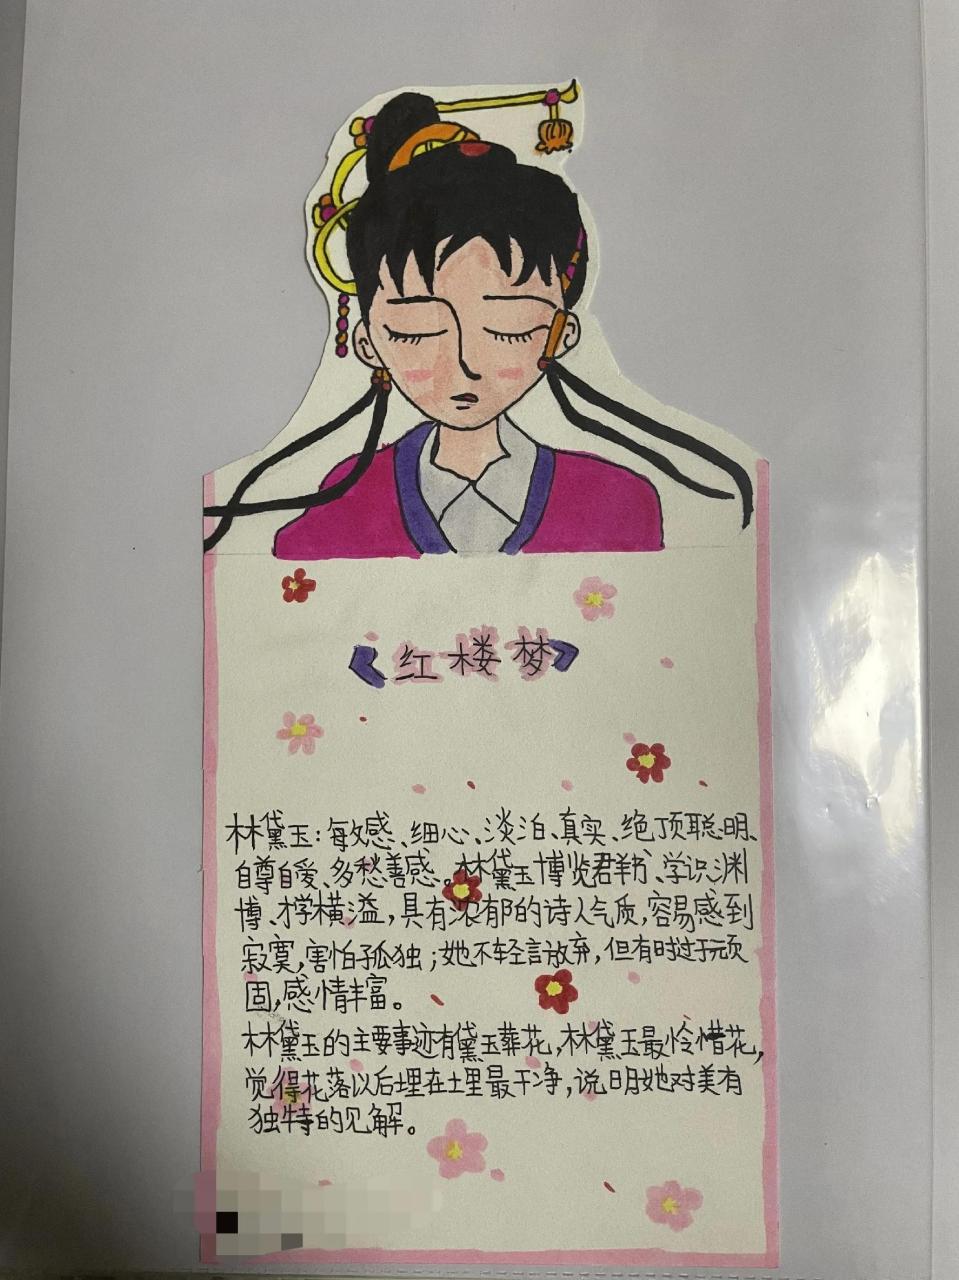 《红楼梦》
林黛玉:每攵感、细心、淡泊、真实、绝顶聪明、
自尊自爱、多愁善感。林黛玉博览君羊书、学识渊
博、才学横溢,具有浓郁的诗人气质,容易感到
寂寞,害怕孤独;她不轻言放弃,但有时过于顽
固,感情丰富。
林黛玉的主要事迹有黛玉葬花,林黛玉最怜惜花,
觉得花落以后埋在土里最干净,说明她对美有
独特的见解。